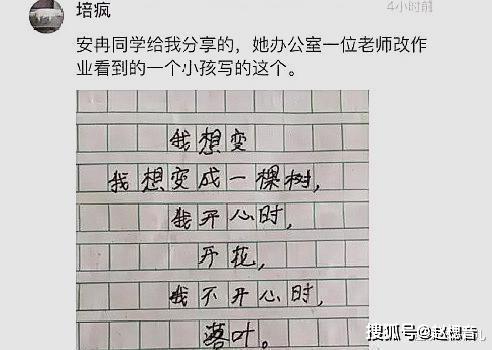 培疯
4小时前
安冉同学给我分享的，她办公室一位老师改作
业看到的一个小孩写的这个。
我想变
我想变成一棵树，
我开心时，
开花，
我不开心时，
落叶。
搜狐号@赵楒音儿